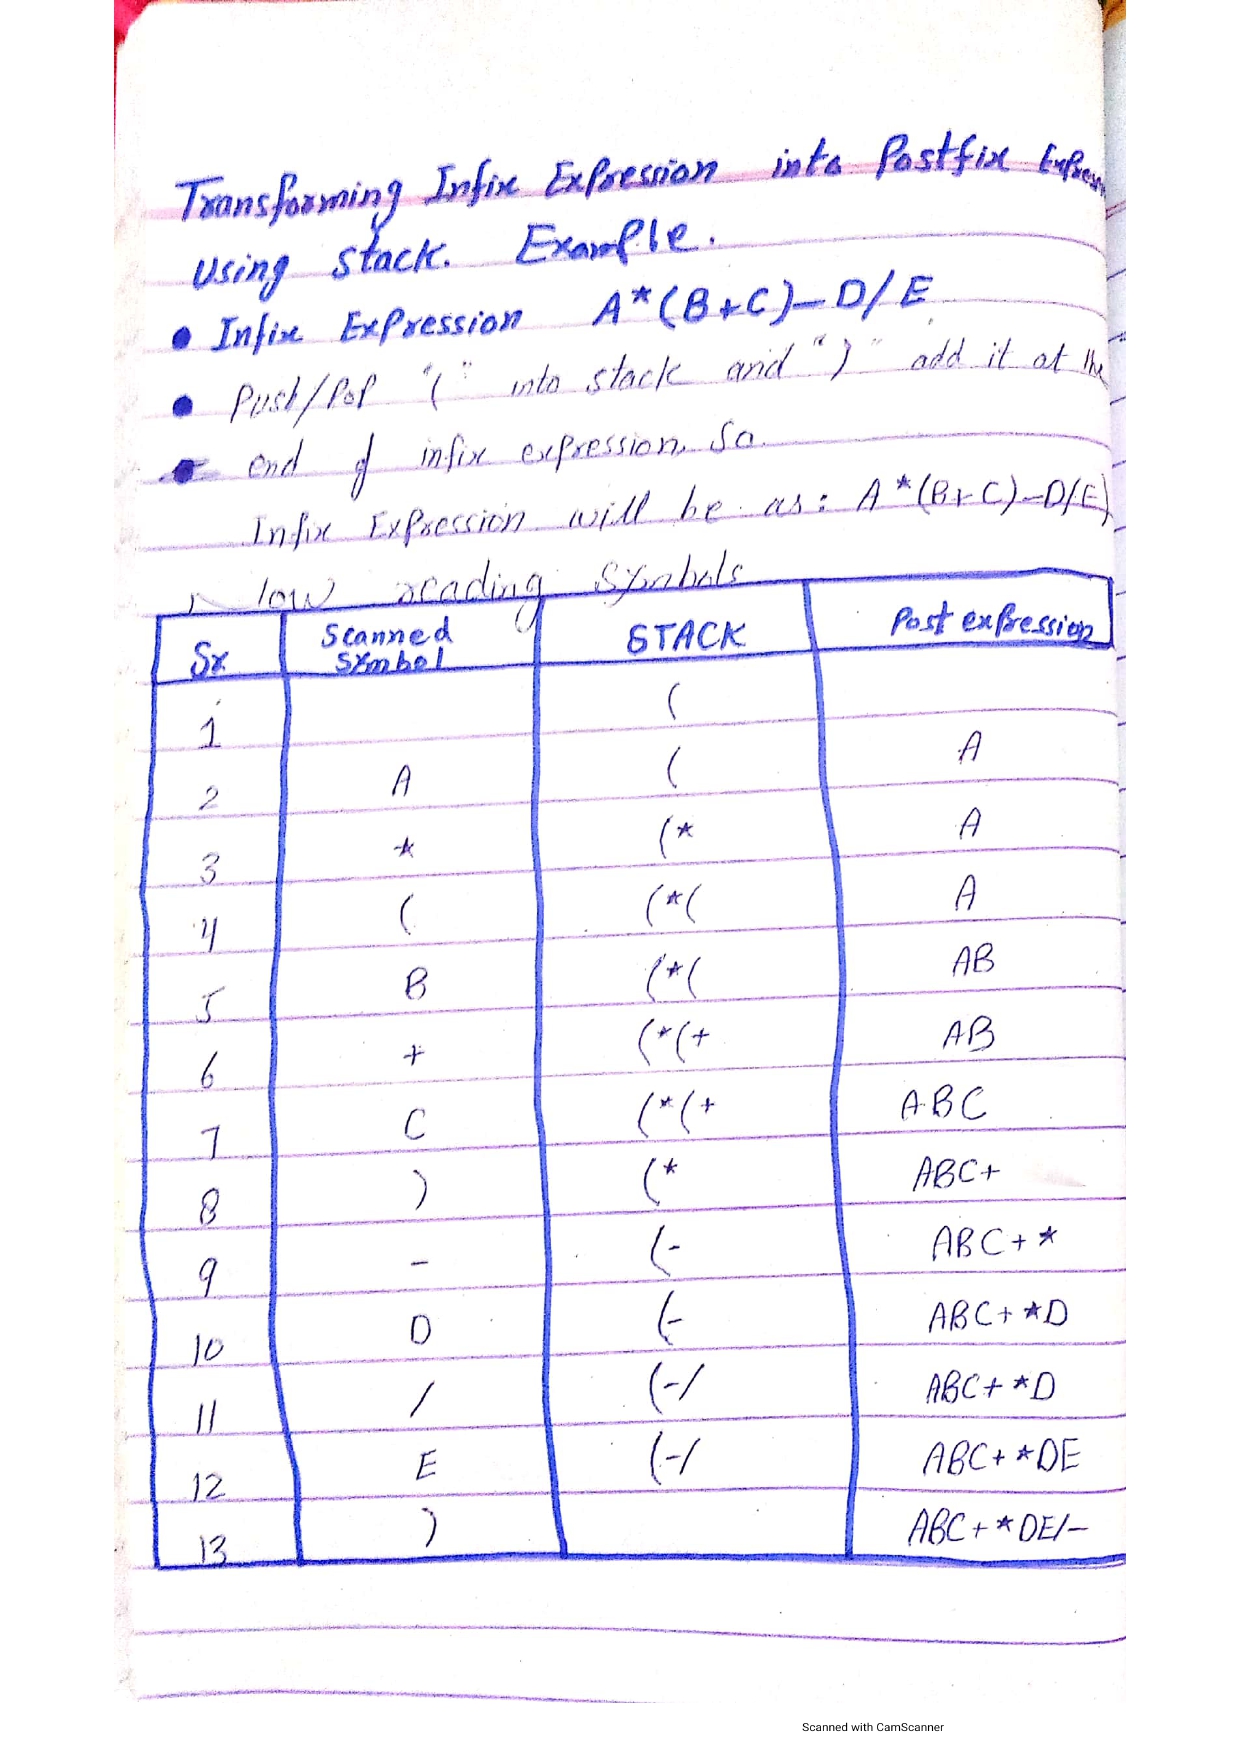 Transforming Infix Expression into Postfix
using stack. Example.
• Infix Expression A*(B+C)-D/E
• Push/Pop "(" into stack and ")" add it at the
• end of infix expression. So.
Infix Expression will be as: A*(B+C)-D/E)
Now reading Symbols
Sr Scanned Symbol STACK Post expression
1 (
2 A ( A
3 * (* A
4 ( (*( A
5 B (*( AB
6 + (*(+ AB
7 C (*(+ ABC
8 ) (* ABC+
9 - (- ABC+*
10 D (- ABC+*D
11 / (-/ ABC+*D
12 E (-/ ABC+*DE
13 ) ABC+*DE/-
Scanned with CamScanner